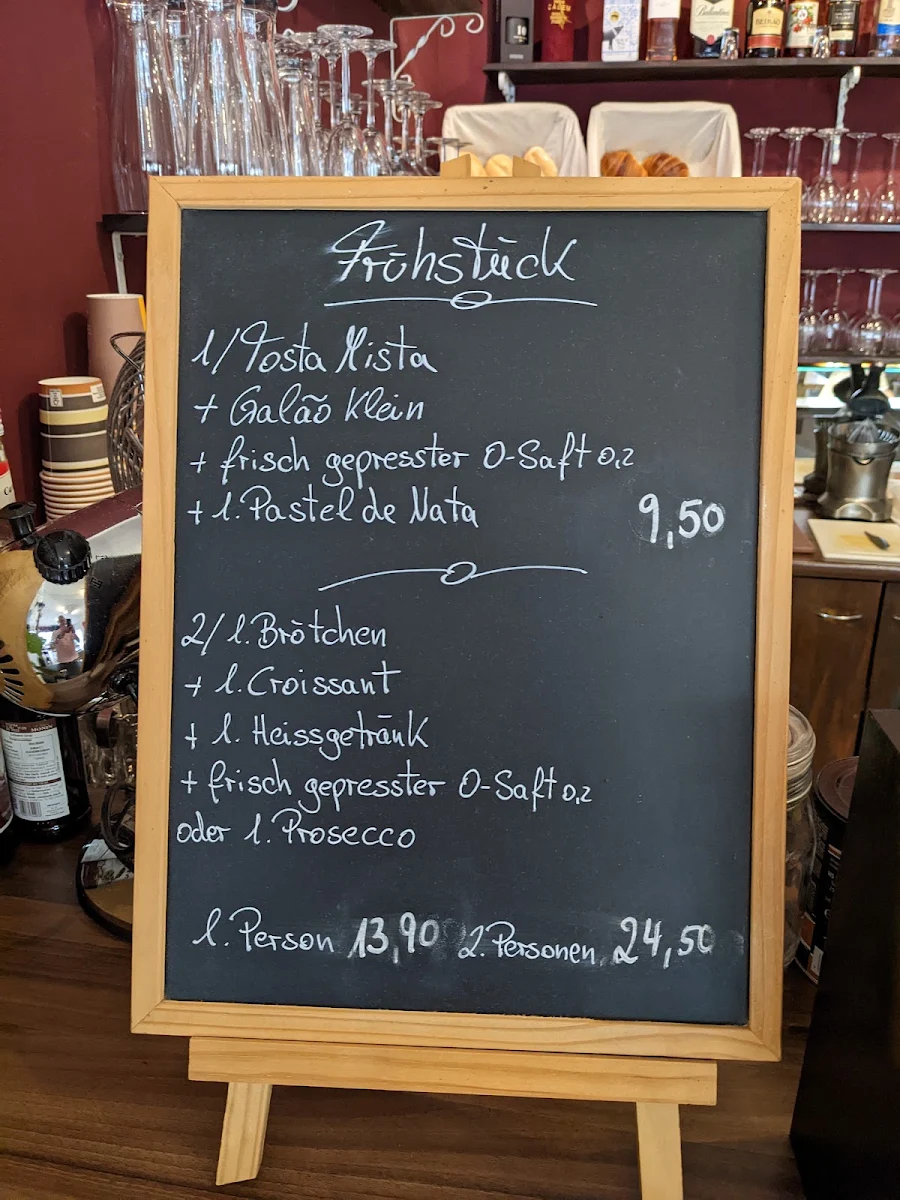 Ballantine's
Frühstück
1/ Tosta Mista
+ Galão Klein
+ frisch gepresster O-Saft 0,2
+ 1. Pastel de Nata 9,50
2/ 1. Brötchen
+ 1. Croissant
+ 1. Heissgetränk
+ frisch gepresster O-Saft 0,2
oder 1. Prosecco
1. Person 13,90 2. Personen 24,50